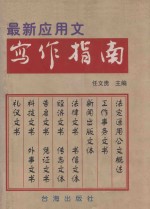 最新应用文
写作指南
任文贵 主编
法定通用公文概述
工作事务文书
新闻出版文体
法律文书 书信文体
经济文书 传志文体
告启文书 凭证文书
科技文书 外事文书
礼仪文书
台海出版社